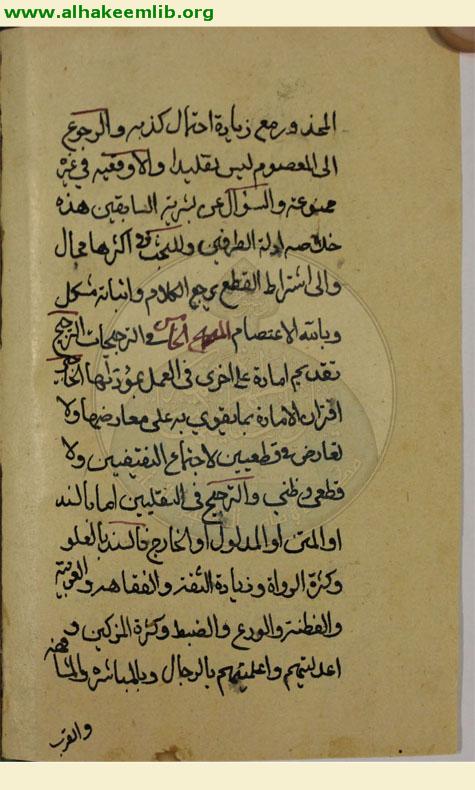 www.alhakeemlib.org
المحذور مع زيادة احتمال كذبه والرجوع
الى المعصوم ليس تقليدا والأوقعيه في غيره
ممنوعة والسؤال عن بشرية السابقين هذه
خلاصة ادلة الطرفين وللبحث في اكثرها مجال
والى اشتراط القطع يرجع الكلام واثباته مشكل
وبالله الاعتصام المنهج الخامس في الترجيحات الترجيح
تقديم امارة على اخرى في العمل بمؤدّيها
اقتران الامارة بما يقوى به على معارضها ولا
تعارض في قطعيين لاجتماع النقيضين ولا
قطعى وظنى والترجيح في النقليين اما بالسند
او المتن او المدلول او الخارج فالسند بالعلو
وكثرة الرواة وزيادة الثقة والفقاهة والعربية
والفطنة والورع والضبط وكثرة المزكين و
اعدليتهم واعلميتهم بالرجال وبالمباشرة والمشافهة
والقرب